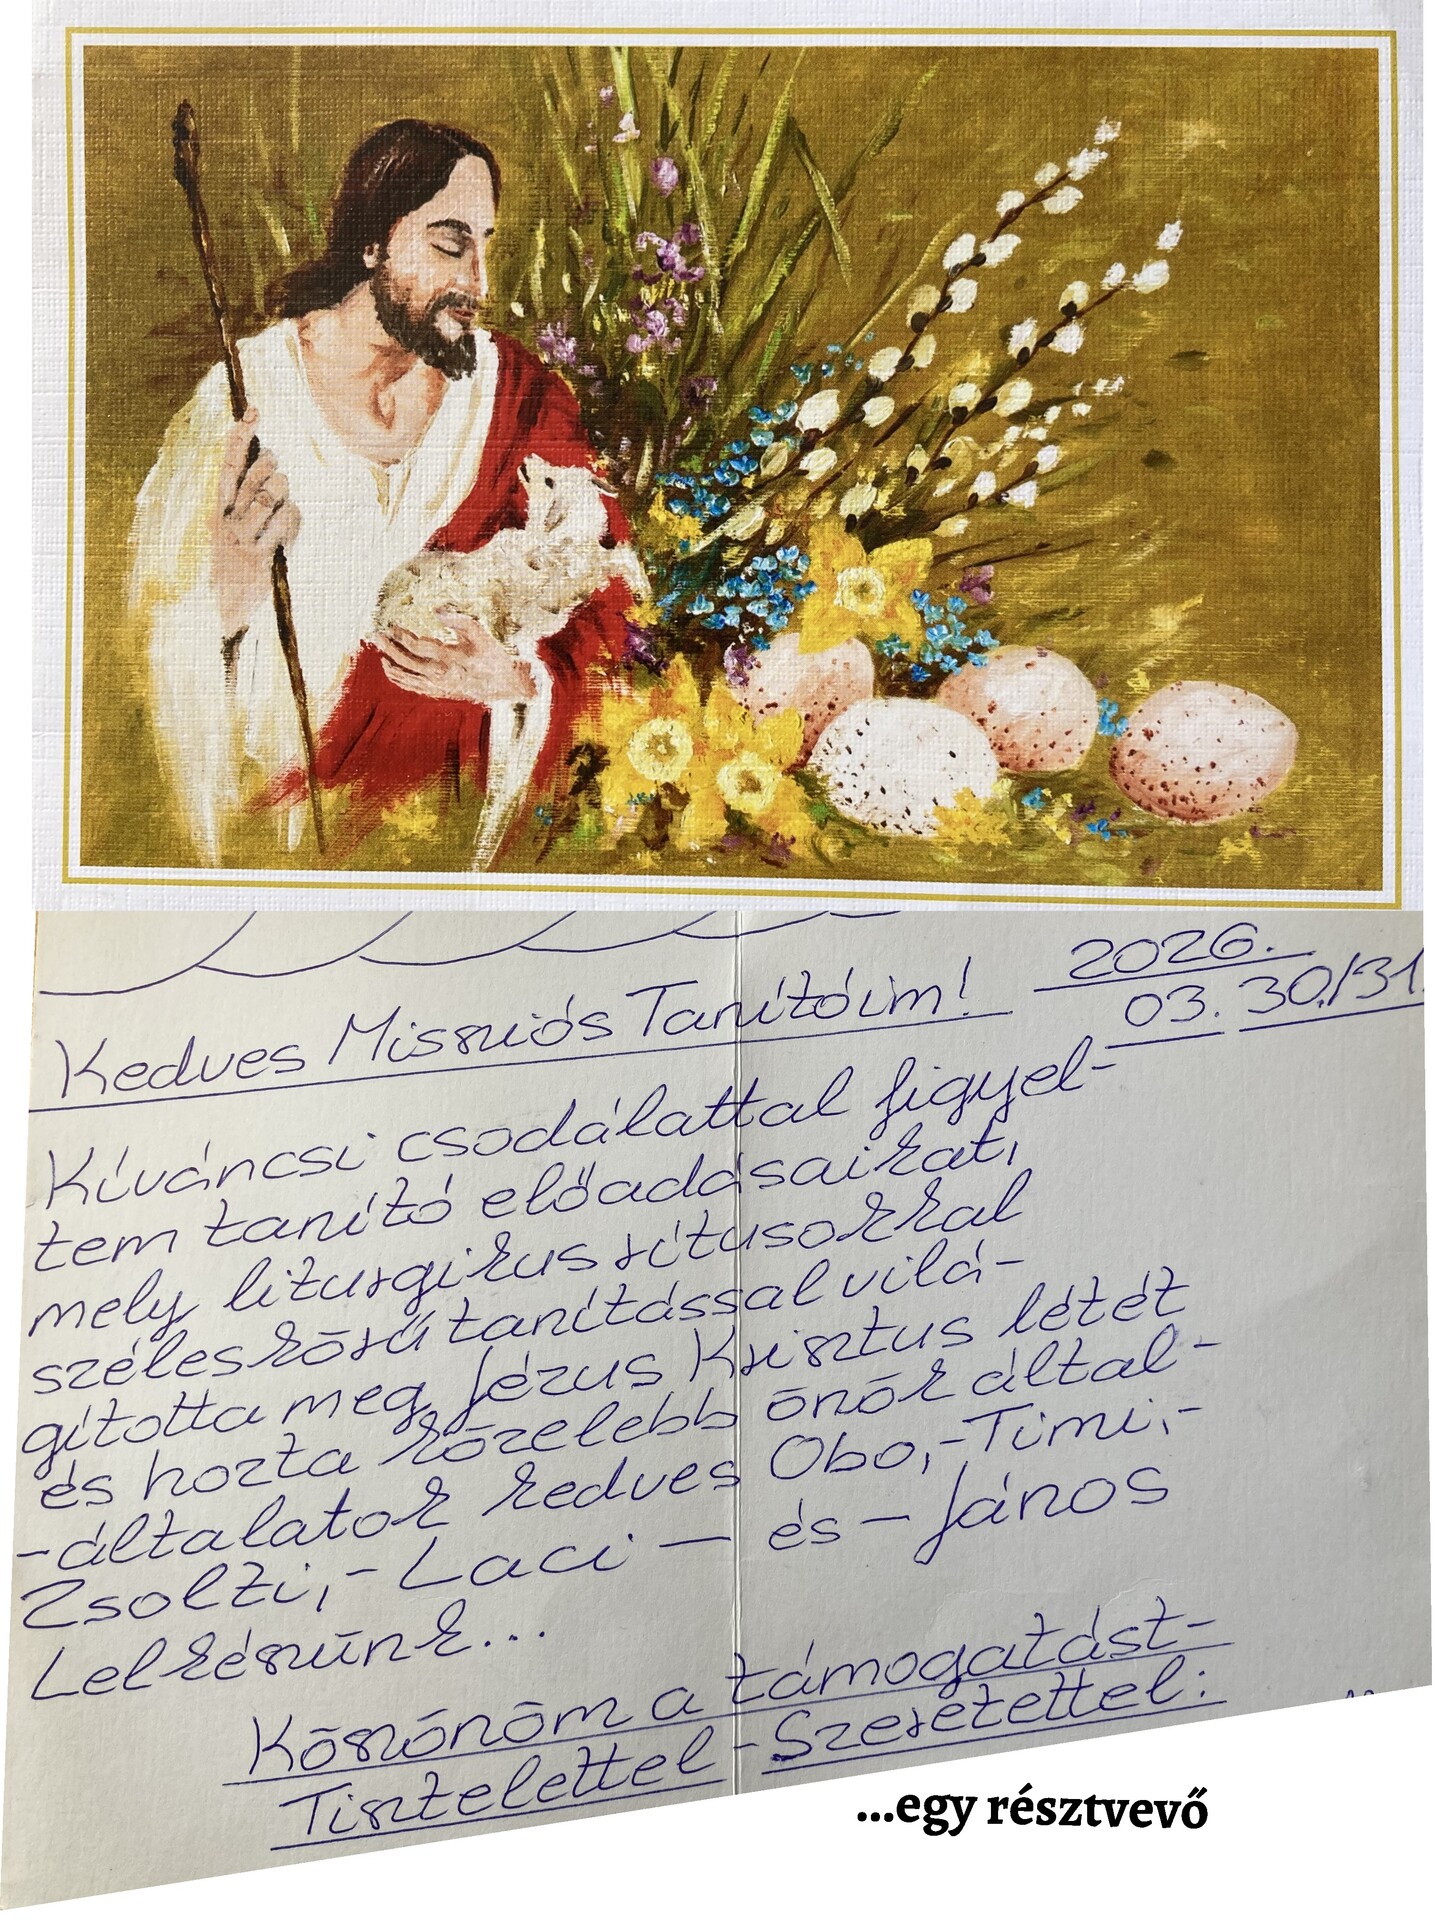 2026.
03. 30./31.
Kedves Missziós Tanítóim!
Kíváncsi csodálattal figyel-
tem tanító előadásaikat,
mely liturgikus rítusokkal
széleskörű tanítással vilá-
gította meg Jézus Krisztus létét
és hozta közelebb önök által-
-általatok kedves Obo,-Timi,-
Zsolti,- Laci - és - János
Lelkészünk...
Köszönöm a támogatást-
Tisztelettel-Szeretettel:
...egy résztvevő